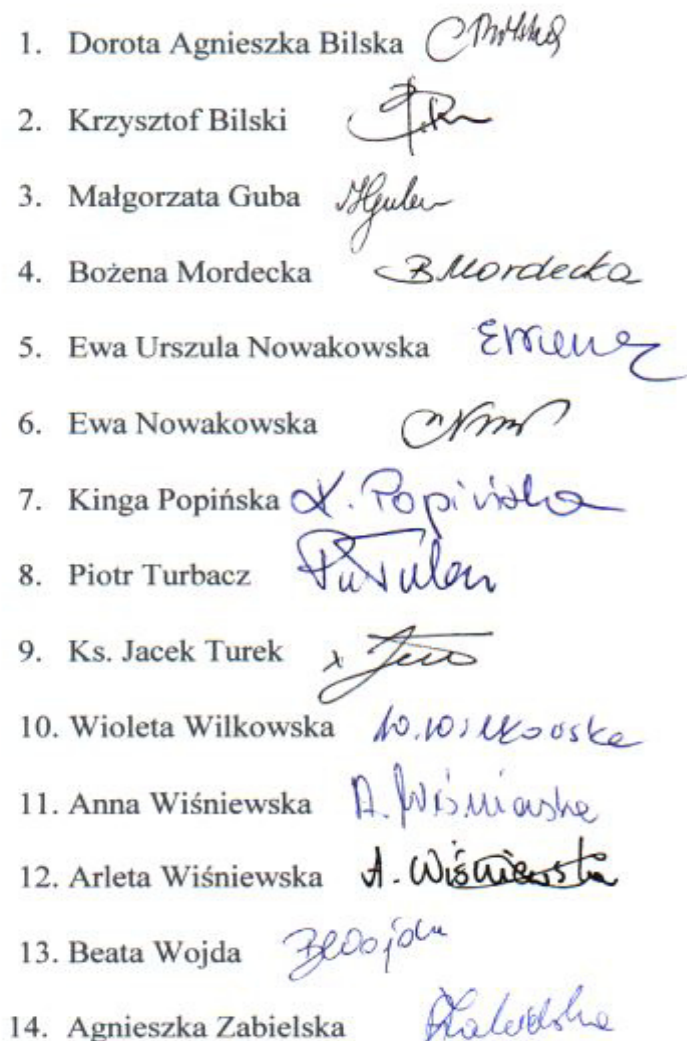 1. Dorota Agnieszka Bilska
2. Krzysztof Bilski
3. Małgorzata Guba
4. Bożena Mordecka B Mordecka
5. Ewa Urszula Nowakowska
6. Ewa Nowakowska
7. Kinga Popińska K. Popińska
8. Piotr Turbacz
9. Ks. Jacek Turek x
10. Wioleta Wilkowska W. Wilkowska
11. Anna Wiśniewska A. Wiśniewska
12. Arleta Wiśniewska A. Wiśniewska
13. Beata Wojda BWojda
14. Agnieszka Zabielska